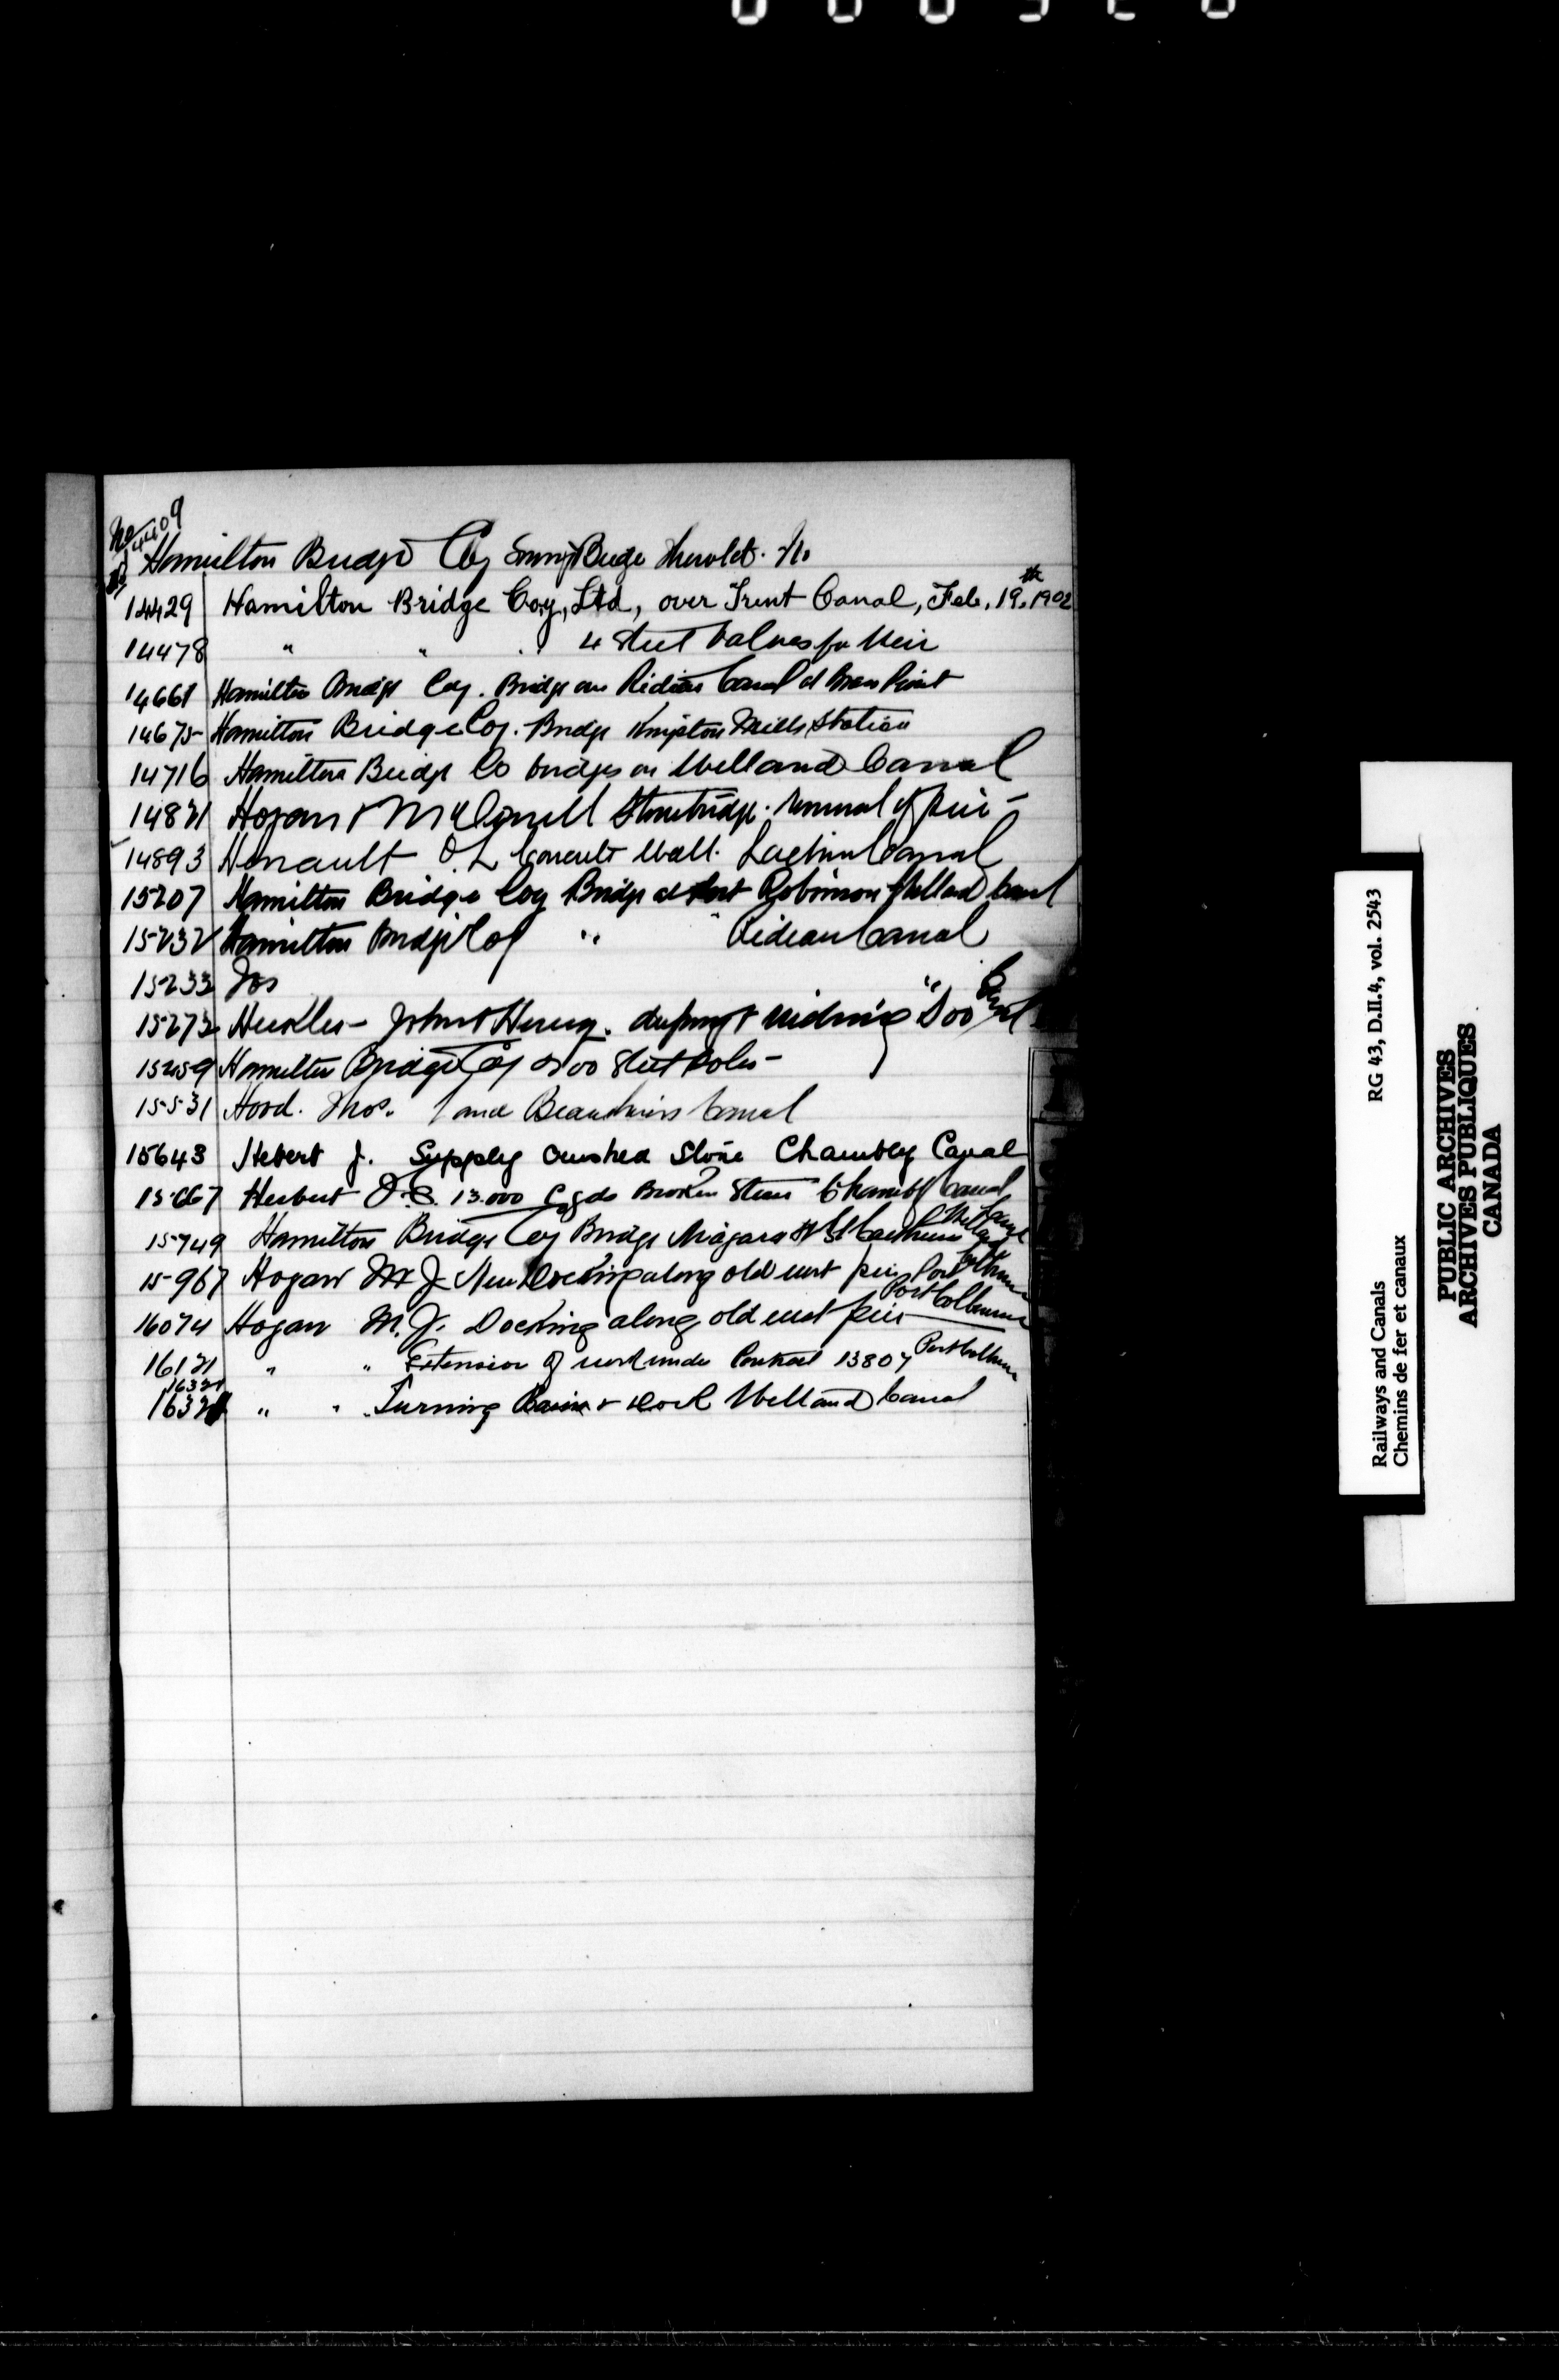 No 14409
Hamilton Bridge Coy Swing Bridge Thorold. No
14429 Hamilton Bridge Coy, Ltd, over Trent Canal, Feb. 19th, 1902
14478 " " " 4 Steel Valves for Weir
14661 Hamilton Bridge Coy. Bridge over Rideau Canal at Brass Point
14675 Hamilton Bridge Coy. Bridge Kingston Mills Station
14716 Hamilton Bridge Co bridges on Welland Canal
14821 Hogan & McDonell Stonebridge. removal of pier -
14893 Henault O. L. Concrete Wall. Lachine Canal
15207 Hamilton Bridge Coy Bridge at Port Robinson Welland Canal
15232 Hamilton Bridge Coy " " Rideau Canal
15233 Jos
15273 John & Henry. deepng & widening "Soo Canal
15259 Hamilton Bridge Coy 200 Steel Poles -
15531 Hood. Thos. land Beauharnois Canal
15643 Hebert J. Supply crushed Stone Chambly Canal
15667 Herbert 13.000 C yds Broken Stone Chambly Canal
15749 Hamilton Bridge Coy Bridge Niagara St St Catharines Welland Canal
15967 Hogan M J New Docking along old west pier Port Colborne
16074 Hogan M. J. Docking along old west pier Port Colborne
16121 " " Extension of work under Contract 13807 Port Colborne
16321
1632 " " Turning Basin & Dock Welland Canal
Railways and Canals RG 43, D.II.4, vol. 2543
Chemins de fer et canaux
PUBLIC ARCHIVES
ARCHIVES PUBLIQUES
CANADA